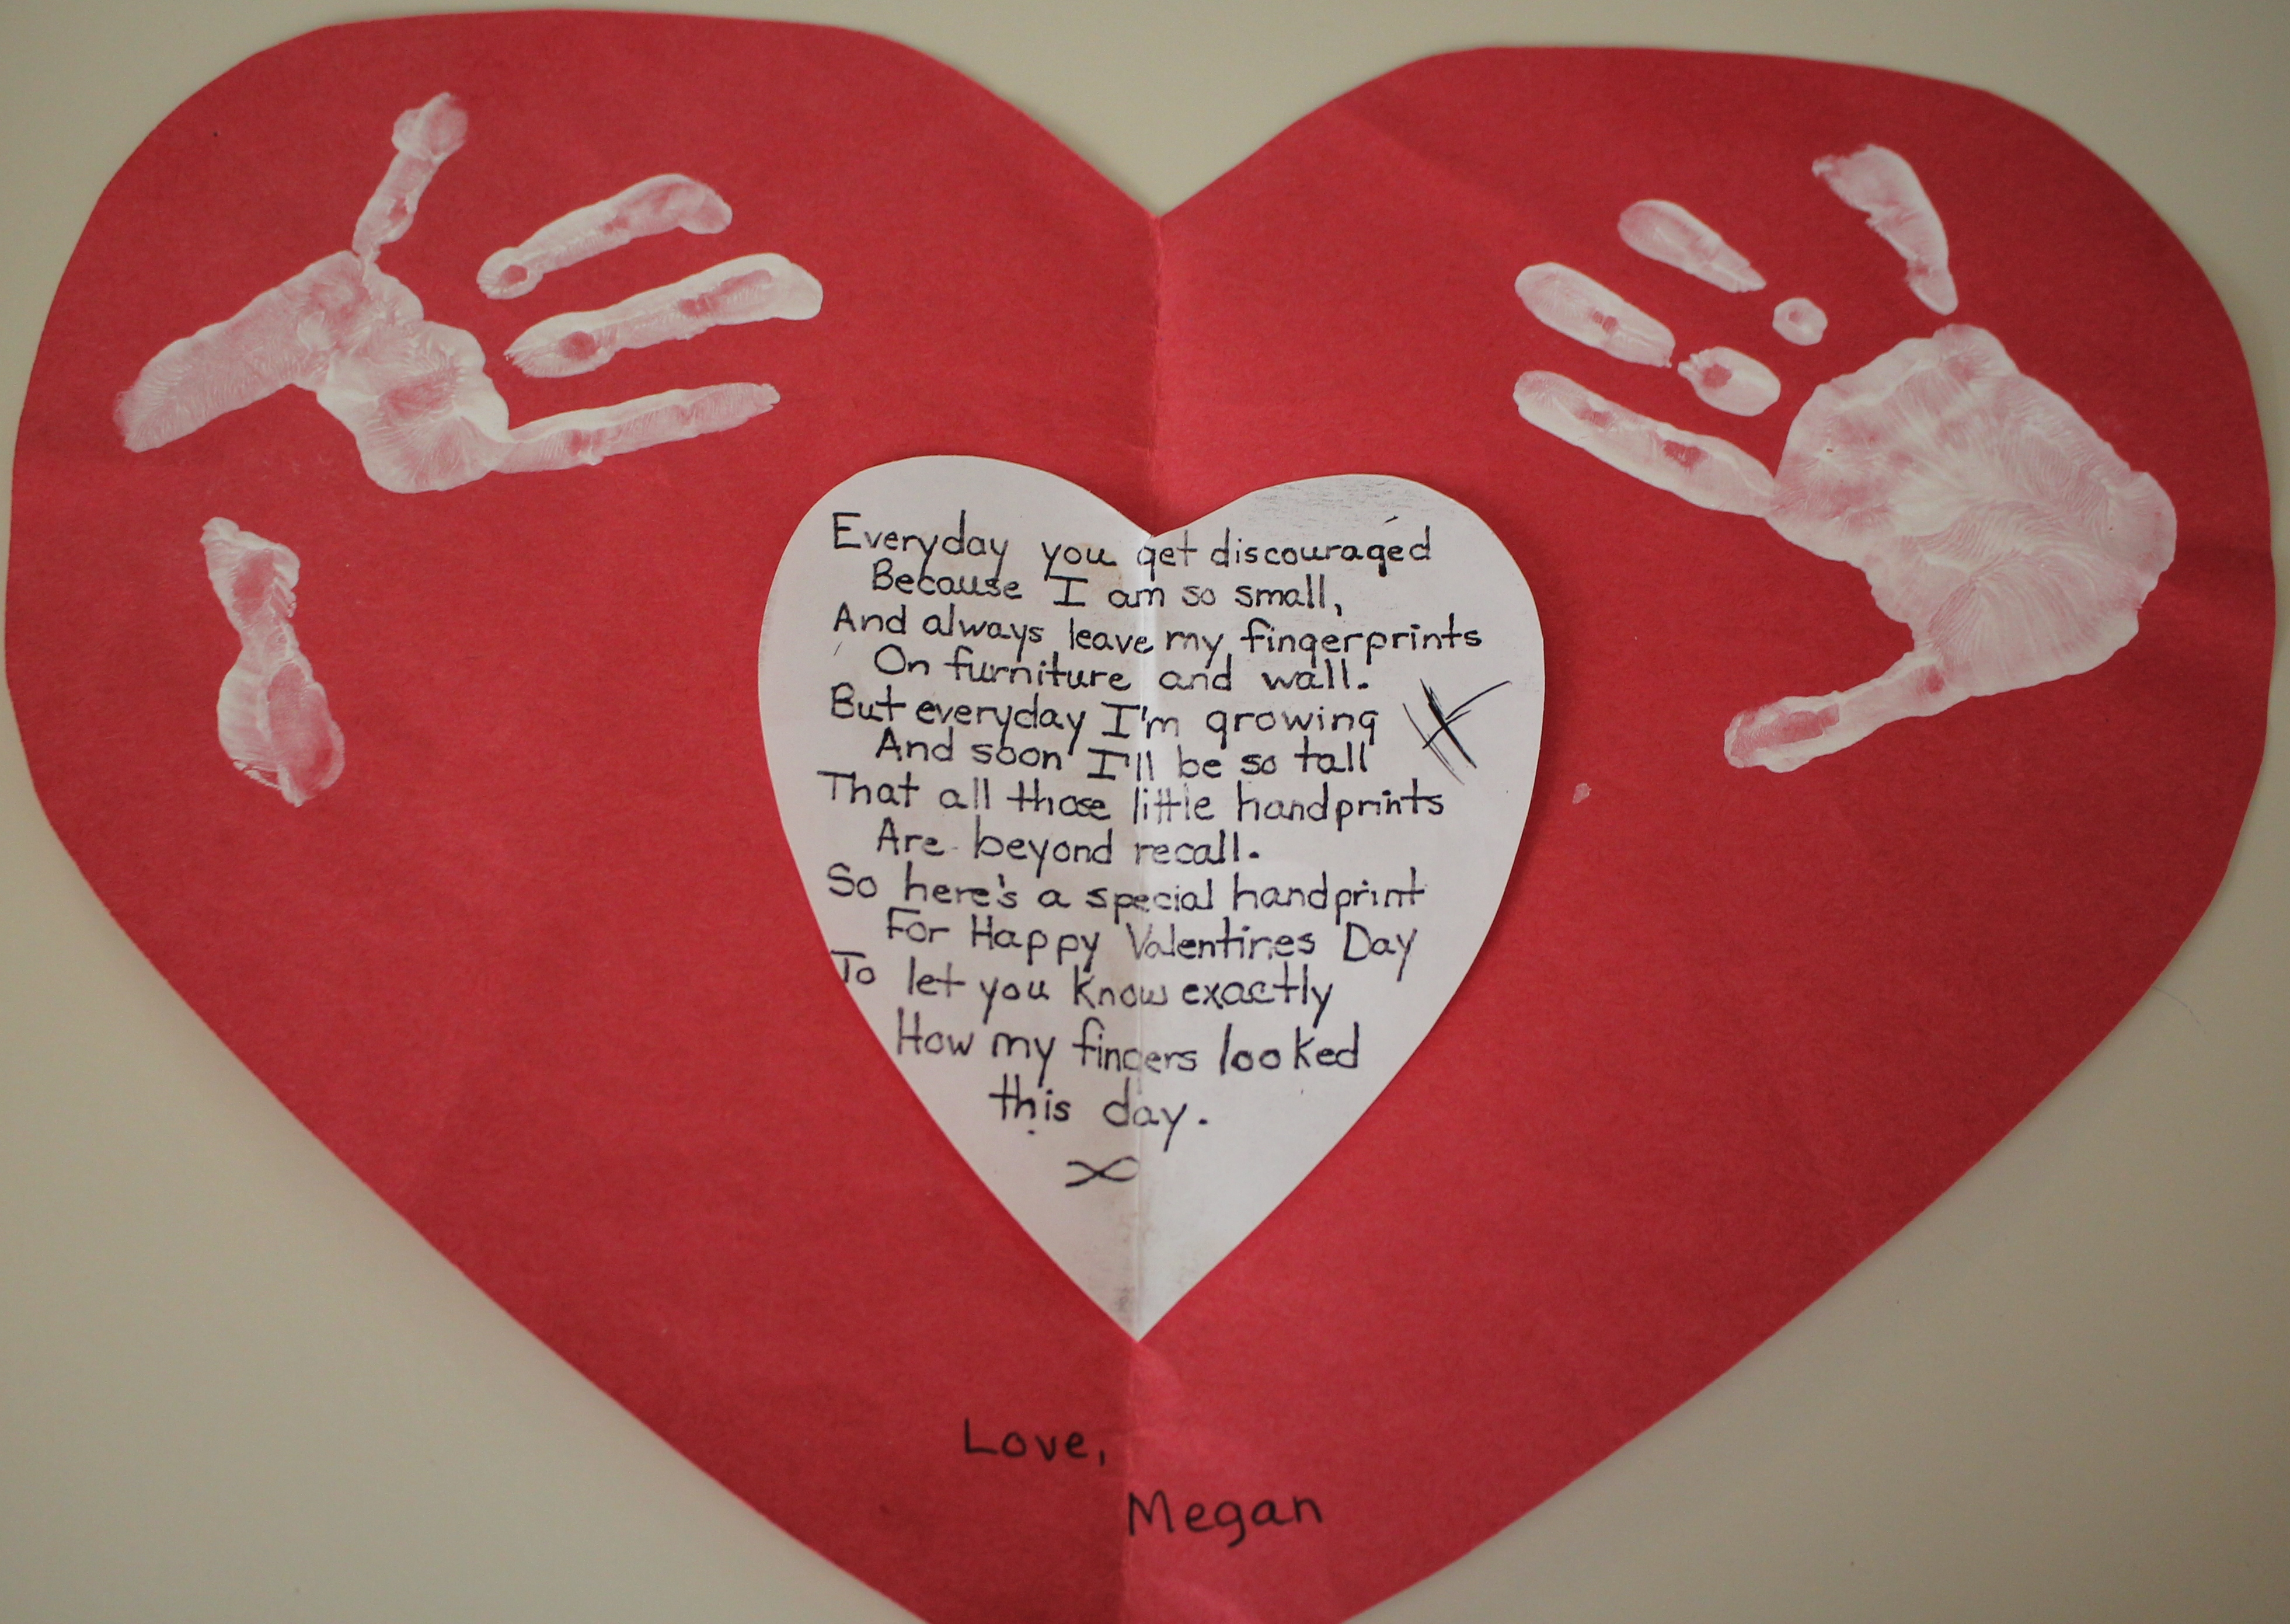 Everyday you get discouraged
Because I am so small,
And always leave my fingerprints
On furniture and wall.
But everyday I'm growing
And soon I'll be so tall
That all those little handprints
Are beyond recall.
So here's a special handprint
For Happy Valentines Day
To let you know exactly
How my fingers looked
this day.
Love,
Megan